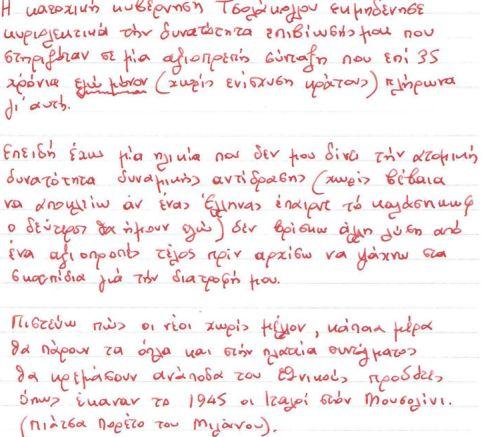 Η κατοχική κυβέρνηση Τσολάκογλου εκμηδένησε
κυριολεκτικά την δυνατότητα επιβίωσής μου που
στηριζόταν σε μία αξιοπρεπή σύνταξη που επί 35
χρόνια εγώ μόνον (χωρίς ενίσχυση κράτους) πλήρωνα
γι' αυτή.
Επειδή έχω μία ηλικία που δεν μου δίνει την ατομική
δυνατότητα δυναμικής αντίδρασης (χωρίς βέβαια
να αποκλείω αν ένας Έλληνας έπαιρνε το καλάσνικωφ
ο δεύτερος θα ήμουν εγώ) δεν βρίσκω άλλη λύση από
ένα αξιοπρεπές τέλος πριν αρχίσω να ψάχνω στα
σκουπίδια για την διατροφή μου.
Πιστεύω πώς οι νέοι χωρίς μέλλον, κάποια μέρα
θα πάρουν τα όπλα και στην πλατεία συντάγματος
θα κρεμάσουν ανάποδα τους εθνικούς προδότες
όπως έκαναν το 1945 οι Ιταλοί στον Μουσολίνι.
(Πιάτσα Πορέτο του Μιλάνου).